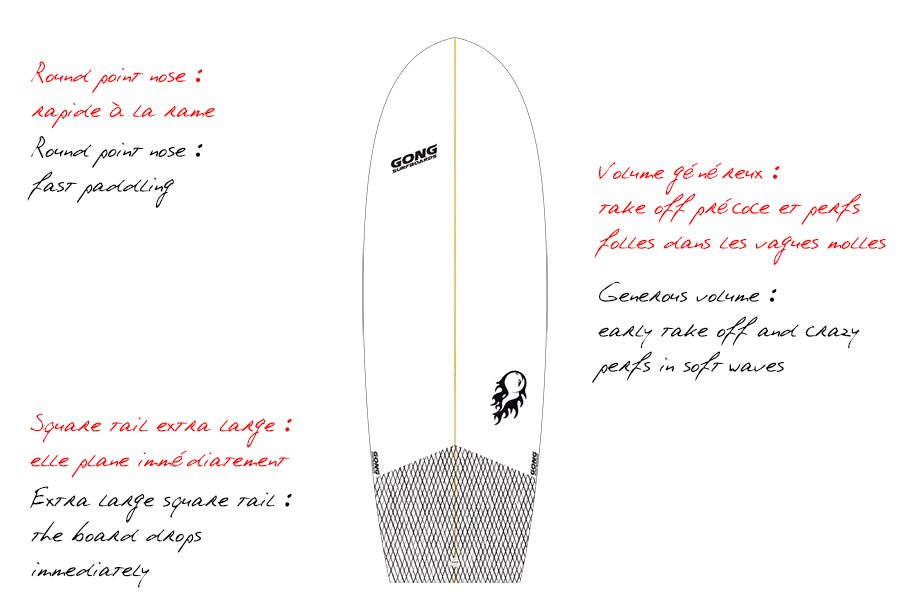 Round point nose :
rapide à la rame
Round point nose :
fast paddling
GONG
SURFBOARDS
Volume généreux :
take off précoce et perfs
folles dans les vagues molles
Generous volume :
early take off and crazy
perfs in soft waves
Square tail extra large :
elle plane immédiatement
Extra large square tail :
the board drops
immediately
GONG
GONG